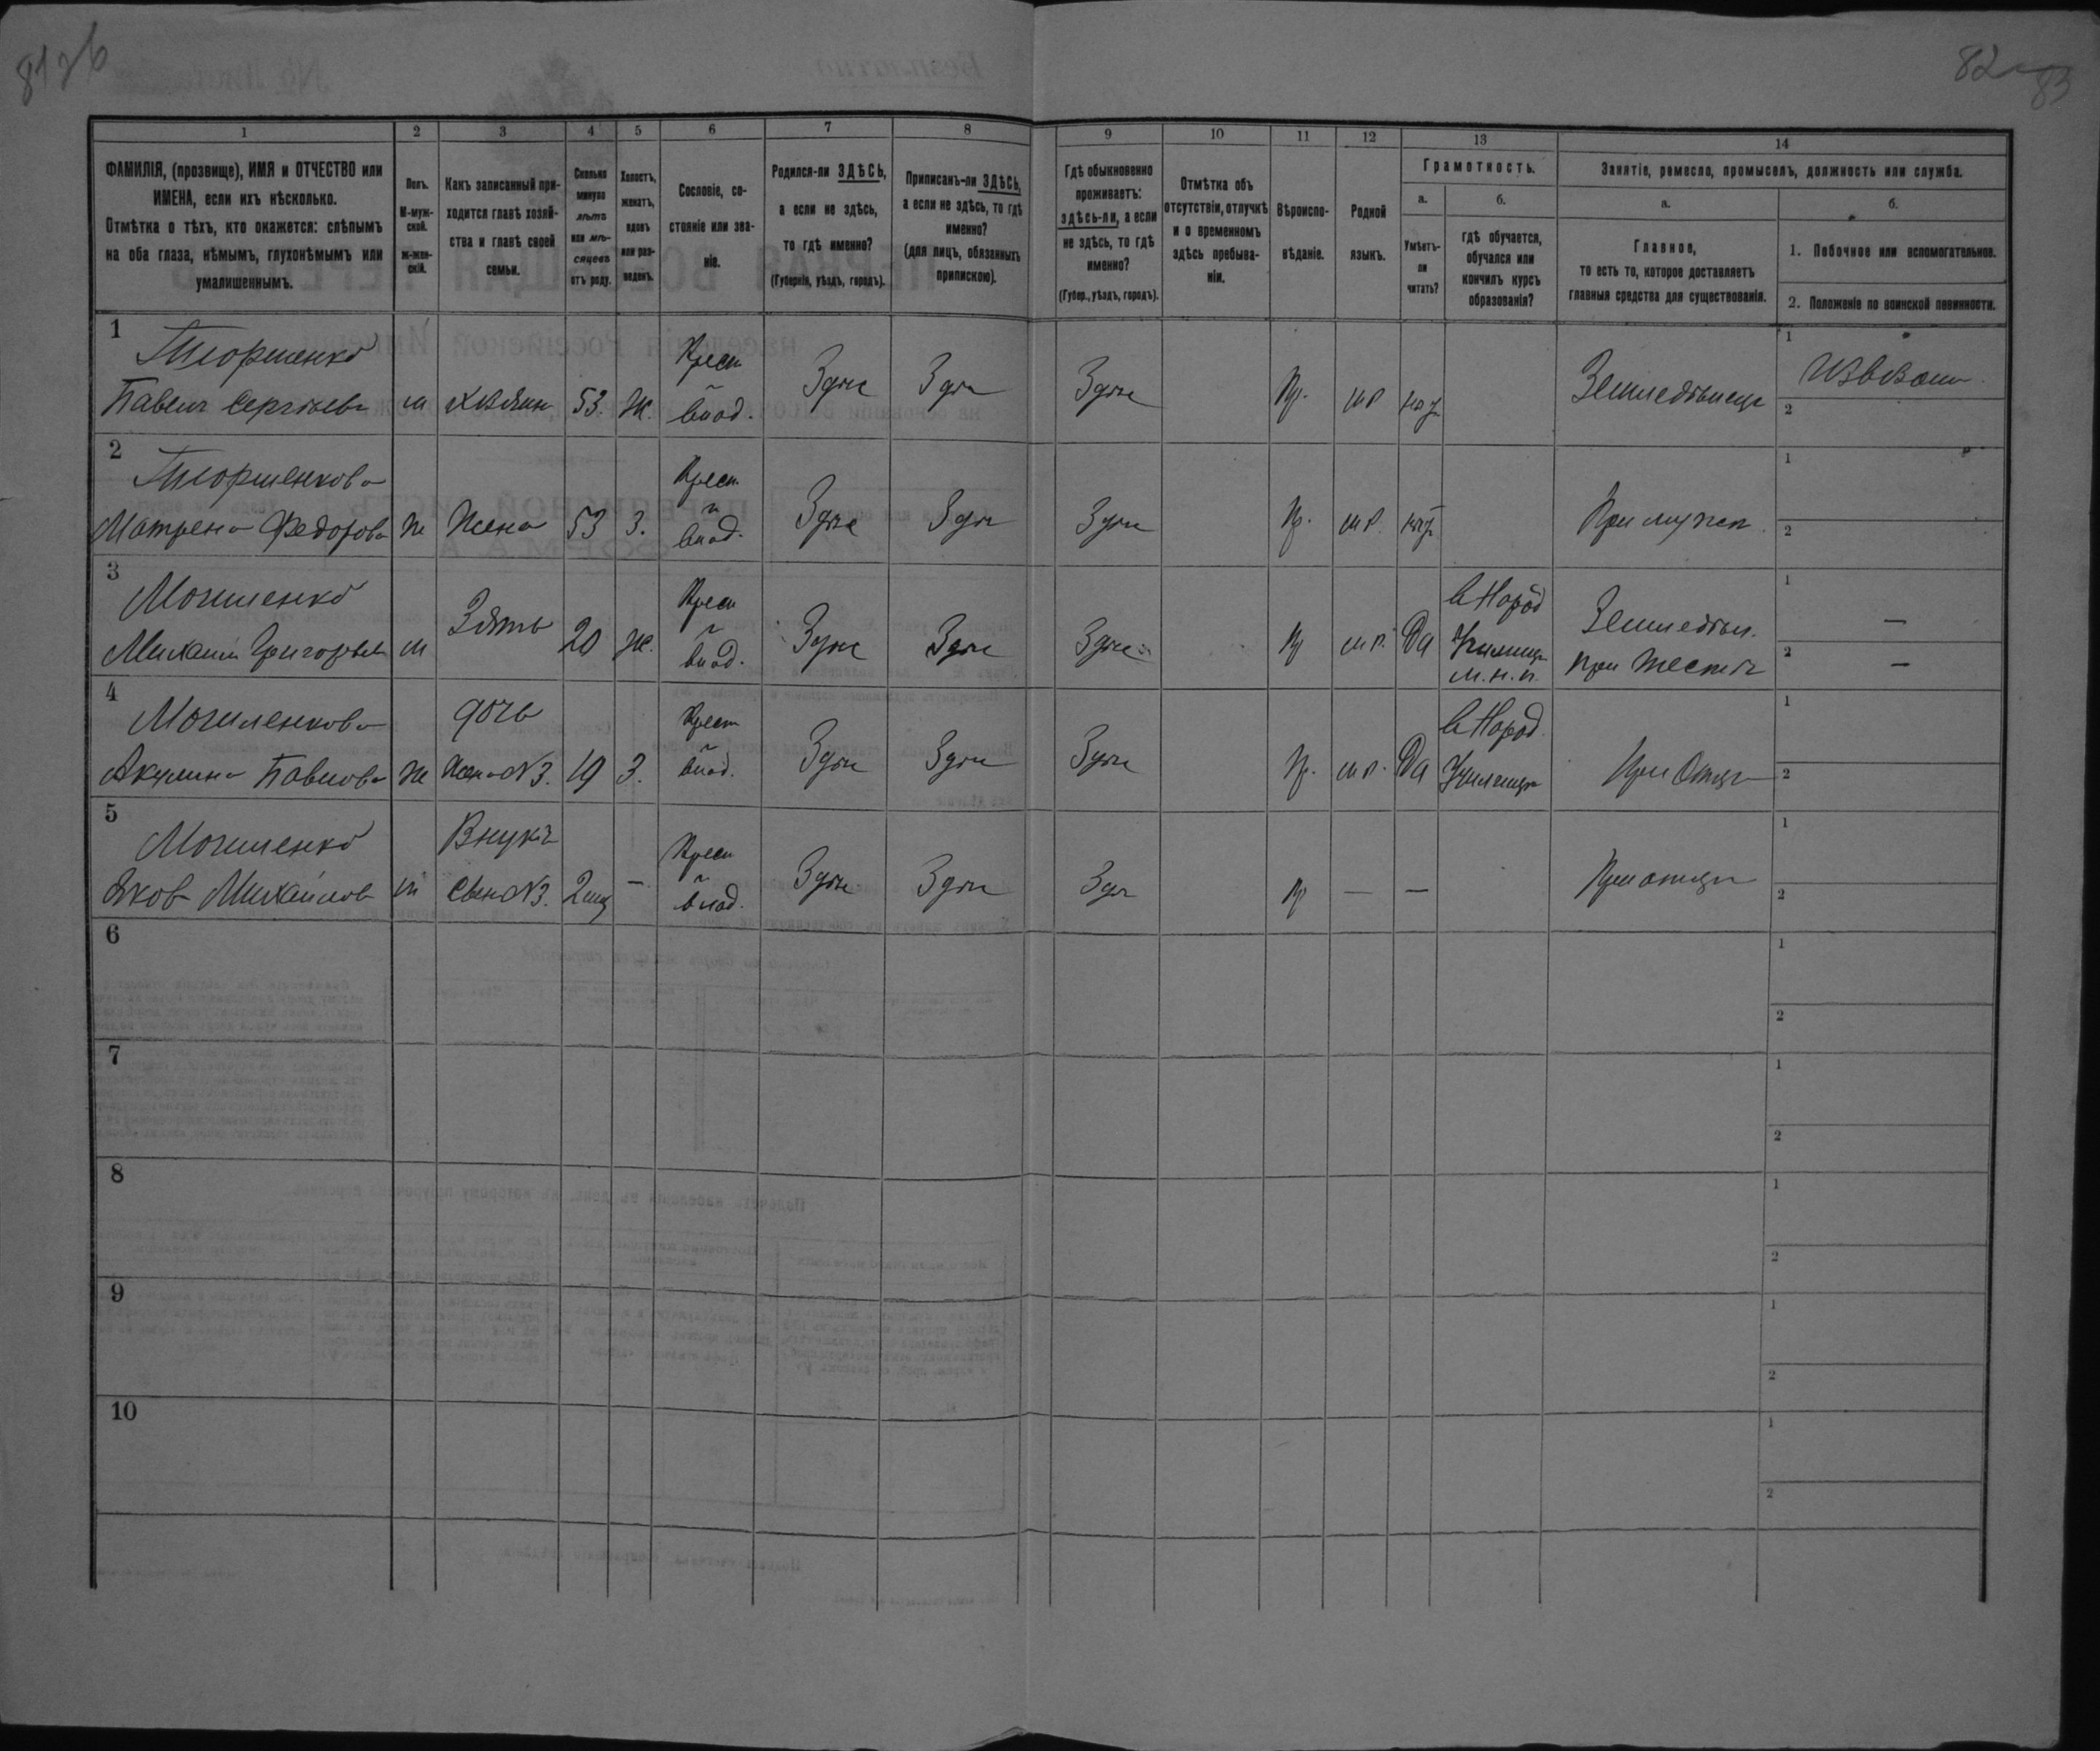 81об
82
83
1
2
3
4
5
6
7
8
9
10
11
12
13
14
ФАМИЛІЯ, (прозвище), ИМЯ и ОТЧЕСТВО или
ИМЕНА, если ихъ нѣсколько.
Отмѣтка о тѣхъ, кто окажется: слѣпымъ
на оба глаза, нѣмымъ, глухонѣмымъ или
умалишеннымъ.
Полъ.
М-муж-
ской.
Ж-жен-
скій.
Какъ записанный при-
ходится главѣ хозяй-
ства и главѣ своей
семьи.
Сколько
минуло
лѣтъ
или мѣ-
сяцевъ
отъ роду.
Холостъ,
женатъ,
вдовъ
или раз-
веденъ.
Сословіе, со-
стояніе или зва-
ніе.
Родился-ли ЗДѢСЬ,
а если не здѣсь,
то гдѣ именно?
(Губернія, уѣздъ, городъ).
Приписанъ-ли ЗДѢСЬ,
а если не здѣсь, то гдѣ
именно?
(для лицъ, обязанныхъ
припискою).
Гдѣ обыкновенно
проживаетъ:
здѣсь-ли, а если
не здѣсь, то гдѣ
именно?
(Губер., уѣздъ, городъ).
Отмѣтка объ
отсутствіи, отлучкѣ
и о временномъ
здѣсь пребыва-
ніи.
Вѣроиспо-
вѣданіе.
Родной
языкъ.
Грамотность.
а.
Умѣетъ-
ли
читать?
б.
гдѣ обучается,
обучался или
кончилъ курсъ
образованія?
Занятіе, ремесло, промыселъ, должность или служба.
а.
Главное,
то есть то, которое доставляетъ
главныя средства для существованія.
б.
1. Побочное или вспомогательное.
2. Положеніе по воинской повинности.
1
Павелъ Сергѣевъ
м
хозяин
53.
ж.
Крест
влад.
Здѣсь
Здѣсь
Здѣсь
Пр.
мр
Земледѣлецъ
1
2
2
Матрена Федорова
ж
Жена
53
З.
Крест
влад.
Здѣсь
Здѣсь
Здѣсь
Пр.
мр.
При мужѣ
1
2
3
Могиленко
Михаилъ Григорьев
м
Зять
20
ж.
Крест
влад.
Здѣсь
Здѣсь
Здѣсь
Пр
мр.
Да
в Народ
Училищѣ
м.н.п.
Земледѣл.
при Тестѣ
1
—
2
—
4
Могиленкова
Акулина Павлова
ж
дочь
Жена №3.
19
З.
Крест
влад.
Здѣсь
Здѣсь
Здѣсь
Пр.
мр.
Да
в Народ.
Училищѣ
При Отцѣ
1
2
5
Могиленко
Яков Михайлов
м
Внукъ
Сынъ №3.
2мц
—
Крест
влад.
Здѣсь
Здѣсь
Здѣсь
Пр
—
—
При отцѣ
1
2
6
1
2
7
1
2
8
1
2
9
1
2
10
1
2